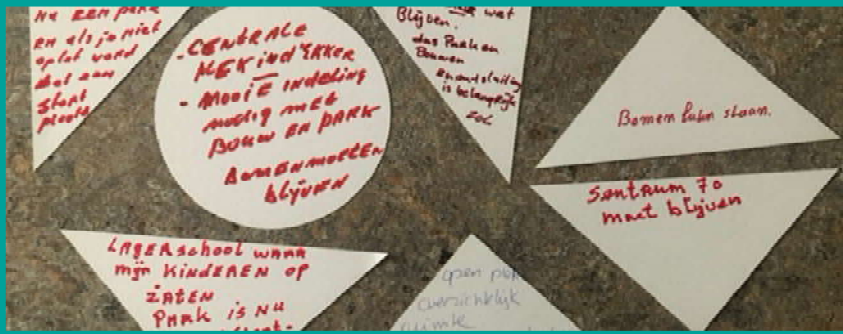 Nu een park
en als je niet
oplet word
dat een
stort
plaats
- CENTRALE
PLEK IN D'EKKER
- MOOIE INDELING
nodig met
BOUW EN PARK
BOMEN MOETEN
blijven
wat
Blijven.
das Park en
Bouwen
is belangrijk
Bomen laten staan.
Sentrum 70
moet blijven
LAGER school waar
mijn KINDEREN OP
ZATEN
PARK is NU
open
overzichtelijk
ruimte